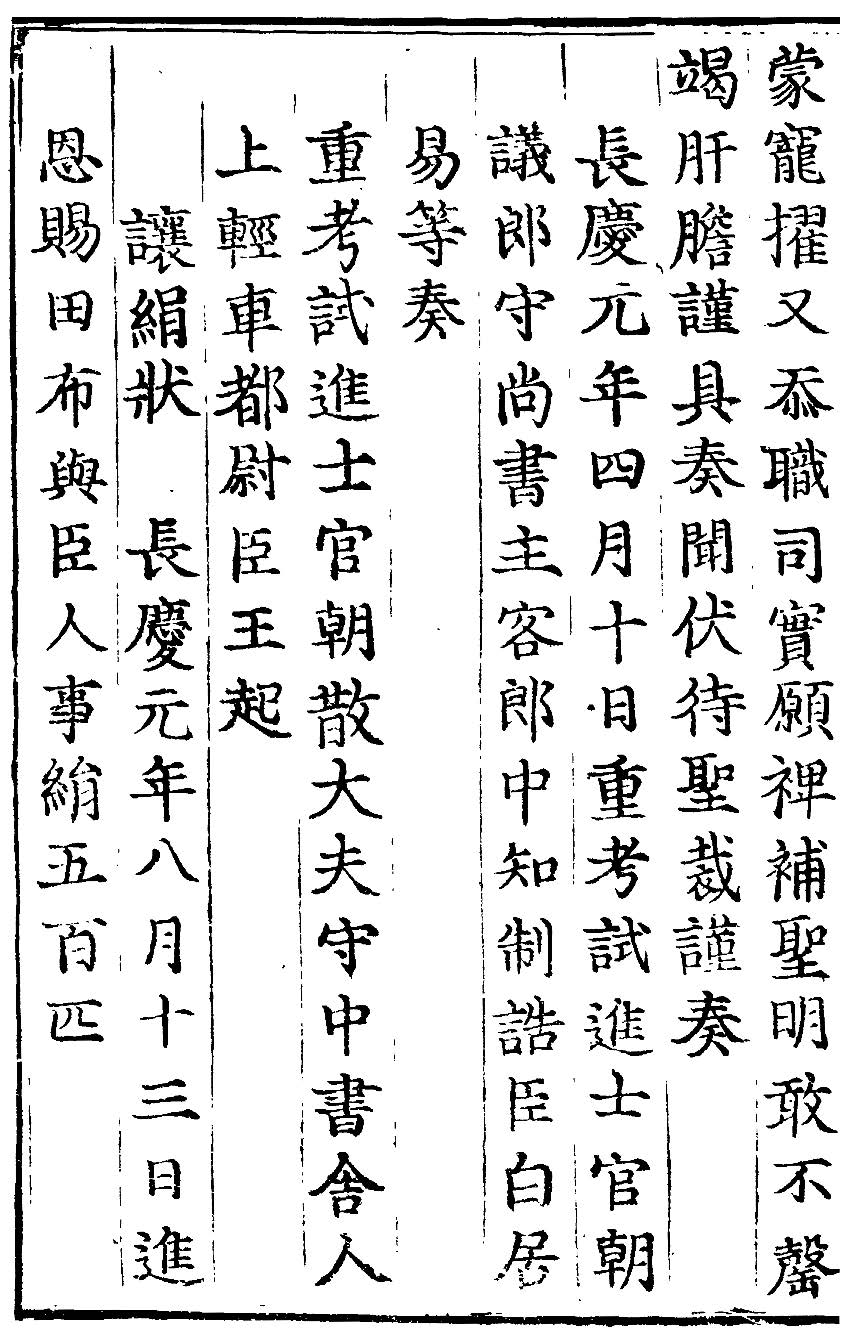 蒙寵擢又忝職司實願裨補聖明敢不罄
竭肝膽謹具奏聞伏待聖裁謹奏
長慶元年四月十日重考試進士官朝
議郎守尚書主客郎中知制誥臣白居
易等奏
重考試進士官朝散大夫守中書舍人
上輕車都尉臣王起
讓絹狀　長慶元年八月十三日進
恩賜田布與臣人事絹五百匹